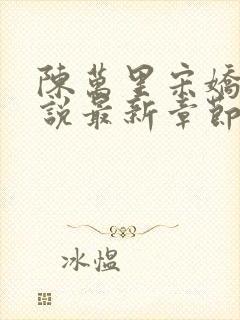 陳萬里宋嬌
說最新章節
冰煴